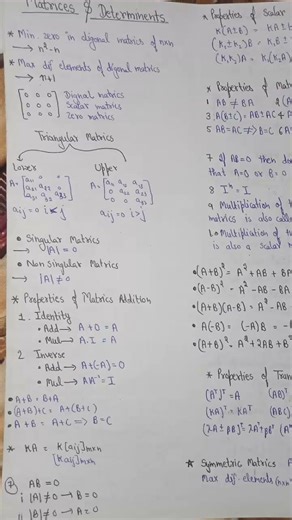 Matrices & Determinents
* Min zero in digonal matrics of nxn
→ n²-n
* Max dif elements of digonal matrics
→ n+1
[0 0 0
0 0 0
0 0 0]
Digonal matrics
Scalar matrics
Zero matrics
Triangular Matrics
Lower
Upper
aij = 0 i<j
aij = 0 i>j
• Singular Matrics
→ |A| = 0
• Non Singular Matrics
→ |A| ≠ 0
* Properties of Matrics Addition
1. Identity
• Add → A + 0 = A
• Mul → A.I = A
2 Inverse
• Add → A+(-A) = 0
• Mul → AA⁻¹ = I
• A+B = B+A
• (A+B)+C = A+(B+C)
• A+B = A+C ⟹ B=C
* KA = K[aij]mxn
[Kaij]mxn
7. AB = 0
i |A| ≠ 0 → B = 0
ii |B| ≠ 0 → A = 0
* Properties of Scalar
K(A±B) = KA±K
(K₁±K₂)B = K₁B ±
(K₁K₂)A = K₁(K₂A)
* Properties of Mat
1 AB ≠ BA
3 A(B±C) = AB±AC
5 AB=AC ⇏ B=C
7 if AB=0 then do
that A=0 or B=0
8 Iⁿ = I
9 Multiplication of
matrics is also calle
10 Multiplication of
is also a scalar m
• (A+B)² = A²+AB+BA
• (A-B)² = A²-AB-BA
• (A+B)(A-B) = A²-AB
• A(-B) = (-A)B = -
• (A+B)² = A²+2AB+B²
* Properties of Tran
(Aᵀ)ᵀ = A
(AB)ᵀ
(KA)ᵀ = KAᵀ
(ABC)
* Symmetric Matrics
Max dif. elements